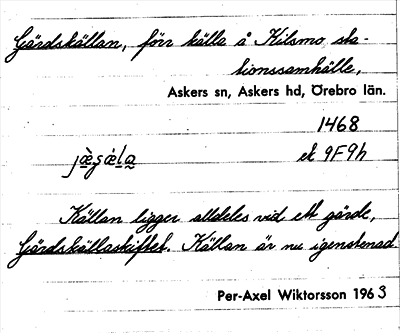 Gärdskällan, förr källa å Kilsmo sta-
tionssamhälle,
Askers sn, Askers hd, Örebro län.
1468
ek 9F9h
Källan ligger alldeles vid ett gärde,
Gärdskällaskiftet. Källan är nu igenstenad.
Per-Axel Wiktorsson 1963